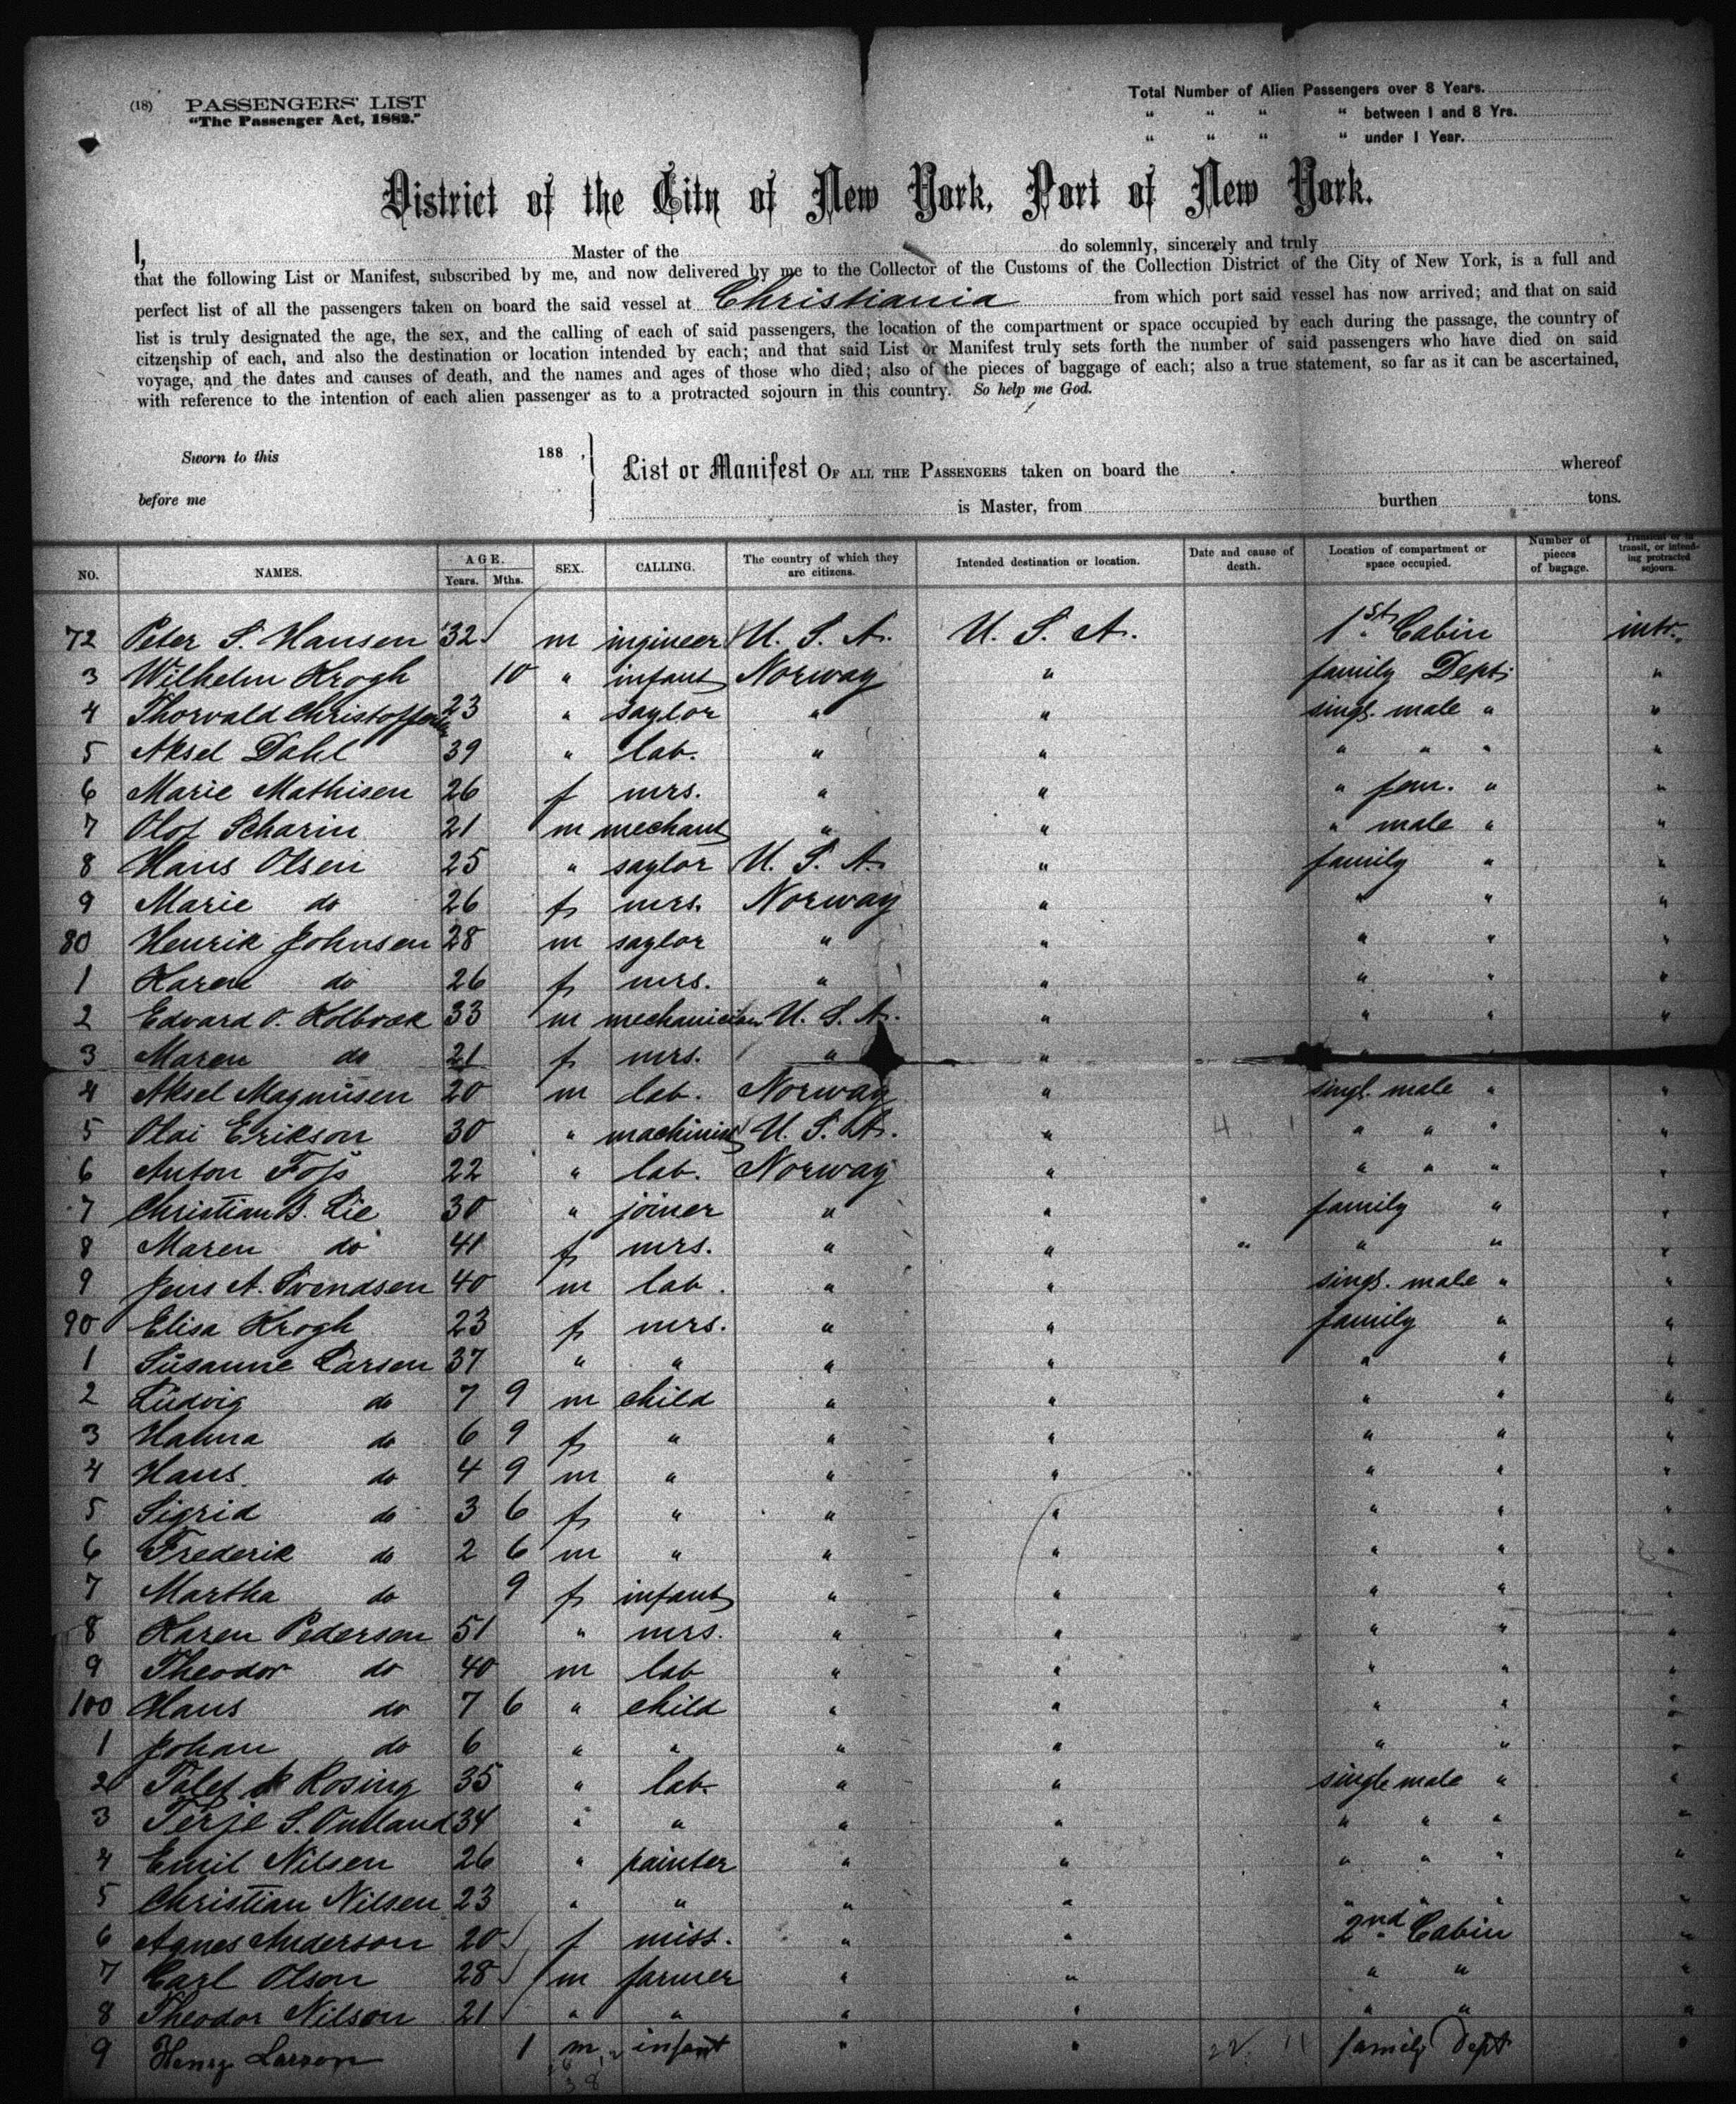 (18) PASSENGERS' LIST
"The Passenger Act, 1882."
Total Number of Alien Passengers over 8 Years.
" " " " between 1 and 8 Yrs.
" " " " under 1 Year.
District of the City of New York, Port of New York.
I, Master of the do solemnly, sincerely and truly
that the following List or Manifest, subscribed by me, and now delivered by me to the Collector of the Customs of the Collection District of the City of New York, is a full and
perfect list of all the passengers taken on board the said vessel at Christiania from which port said vessel has now arrived; and that on said
list is truly designated the age, the sex, and the calling of each of said passengers, the location of the compartment or space occupied by each during the passage, the country of
citzenship of each, and also the destination or location intended by each; and that said List or Manifest truly sets forth the number of said passengers who have died on said
voyage, and the dates and causes of death, and the names and ages of those who died; also of the pieces of baggage of each; also a true statement, so far as it can be ascertained,
with reference to the intention of each alien passenger as to a protracted sojourn in this country. So help me God.
Sworn to this 188 ,
before me
List or Manifest OF ALL THE PASSENGERS taken on board the whereof
is Master, from burthen tons.
NO. NAMES. AGE. Years. Mths. SEX. CALLING. The country of which they are citizens. Intended destination or location. Date and cause of death. Location of compartment or space occupied. Number of pieces of bagage. Transient or in transit, or intending protracted sojourn.
72 Peter S. Hansen 32 m ingineer U. S. A. U. S. A. 1st Cabin intr.
3 Wilhelm Krogh 10 " infant Norway " family Dept. "
4 Thorvald Christoffersen 23 " saylor " " singl. male " "
5 Aksel Dahl 39 " lab. " " " " " "
6 Marie Mathisen 26 f mrs. " " " fem. " "
7 Olof Scharin 21 m mechant " " " male " "
8 Hans Olsen 25 " saylor U. S. A. " family " "
9 Marie do 26 f mrs. Norway " " " "
80 Henrik Johnsen 28 m saylor " " " " "
1 Karen do 26 f mrs. " " " " "
2 Edvard O. Kolbræk 33 m mechanician U. S. A. " " " "
3 Maren do 21 f mrs. " " "
4 Aksel Magnusen 20 m lab. Norway " singl. male " "
5 Olai Erikson 30 " machinist U. S. A. " " " " "
6 Anton Foss 22 " lab. Norway " " " " "
7 Christian B. Lie 30 " joiner " " family " "
8 Maren do 41 f mrs. " " " " " "
9 Jens A. Svendsen 40 m lab. " " singl. male " "
90 Elisa Krogh 23 f mrs. " " family " "
1 Susanne Larsen 37 " " " " " " "
2 Ludvig do 7 9 m child " " " " "
3 Halma do 6 9 f " " " " " "
4 Hans do 4 9 m " " " " " "
5 Sigrid do 3 6 f " " " " " "
6 Frederik do 2 6 m " " " " " "
7 Martha do 9 f infant " " " " "
8 Karen Pedersen 51 " mrs. " " " " "
9 Theodor do 40 m lab " " " " "
100 Hans do 7 6 " child " " " " "
1 Johan do 6 " " " " " " "
2 Rosing 35 " lab. " " single male " "
3 Terje S. Outland 34 " " " " " " " "
4 Emil Nilsen 26 " painter " " " " " "
5 Christian Nilsen 23 " " " " " " " "
6 Agnes Anderson 20 f miss. " " 2nd Cabin "
7 Carl Olson 28 m farmer " " " " "
8 Theodor Nilson 21 " " " " " " "
9 Henry Larson 1 m infant " " 22 11 family Dept "
38